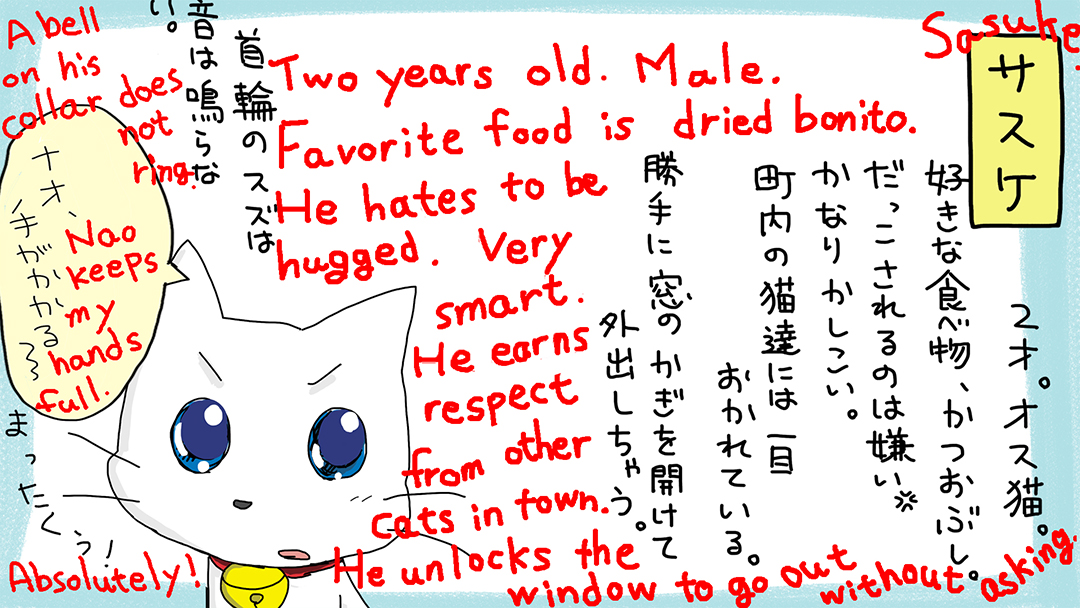 Sasuke.
サスケ
2才。オス猫。
好きな食べ物、かつおぶし。
だっこされるのは嫌い
かなりかしこい。
町内の猫達には一目
おかれている。
勝手に窓のかぎを開けて
外出しちゃう。
首輪のスズは
音は鳴らな
い。
ナオ、
手がかかる〜〜
まったくぅ!
Two years old. Male.
Favorite food is dried bonito.
He hates to be
hugged. Very
smart.
He earns
respect
from other
cats in town.
He unlocks the
window to go out
without asking.
A bell
on his
collar does
not
ring.
Nao
keeps
my
hands
full.
Absolutely!